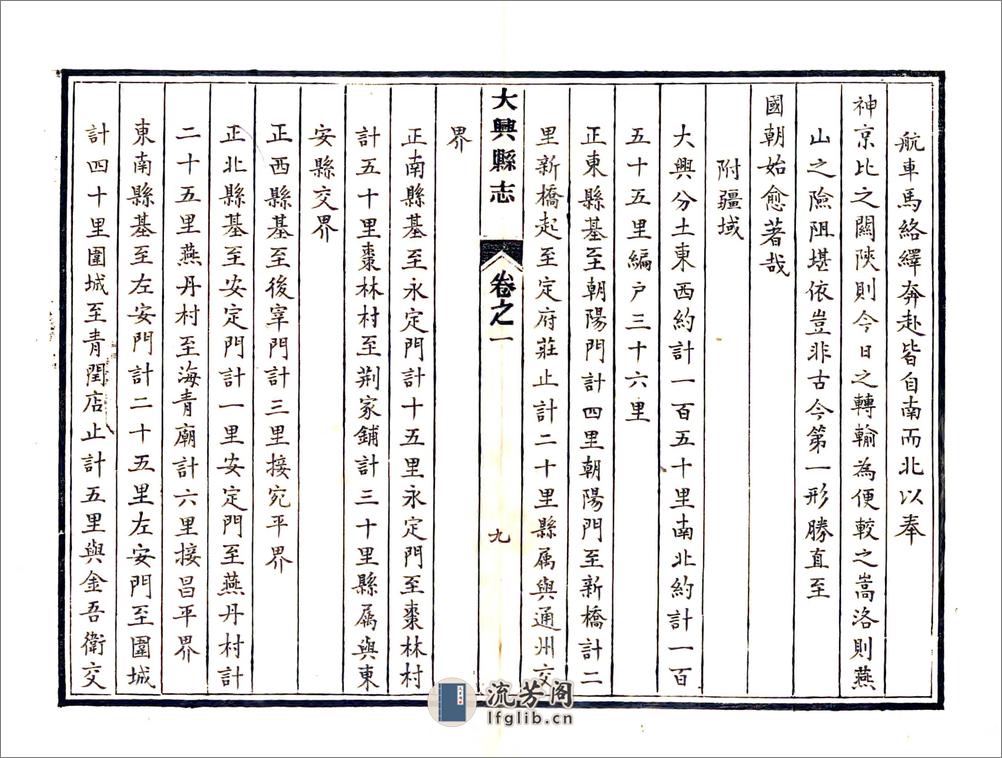 航車馬絡繹奔赴皆自南而北以奉
神京比之關陝則今日之轉輸為便較之嵩洛則燕
山之險阻堪依豈非古今第一形勝直至
國朝始愈著哉
附疆域
大興分土東西約計一百五十里南北約計一百
五十五里編户三十六里
正東縣基至朝陽門計四里朝陽門至新橋計二
里新橋起至定府莊止計二十里縣属與通州交
大興縣志
卷之一
九
界
正南縣基至永定門計十五里永定門至棗林村
計五十里棗林村至荆家鋪計三十里縣属與東
安縣交界
正西縣基至後宰門計三里接宛平界
正北縣基至安定門計一里安定門至燕丹村計
二十五里燕丹村至海青廟計六里接昌平界
東南縣基至左安門計二十五里左安門至圍城
計四十里圍城至青閏店止計五里與金吾衛交
流芳阁
lfglib.cn